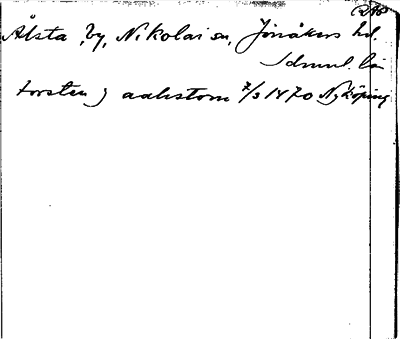 Ålsta, by, Nikolai sn, Jönåkers hd,
Sörml. län
torsten j aakstom 7/3 1870 Nyköping